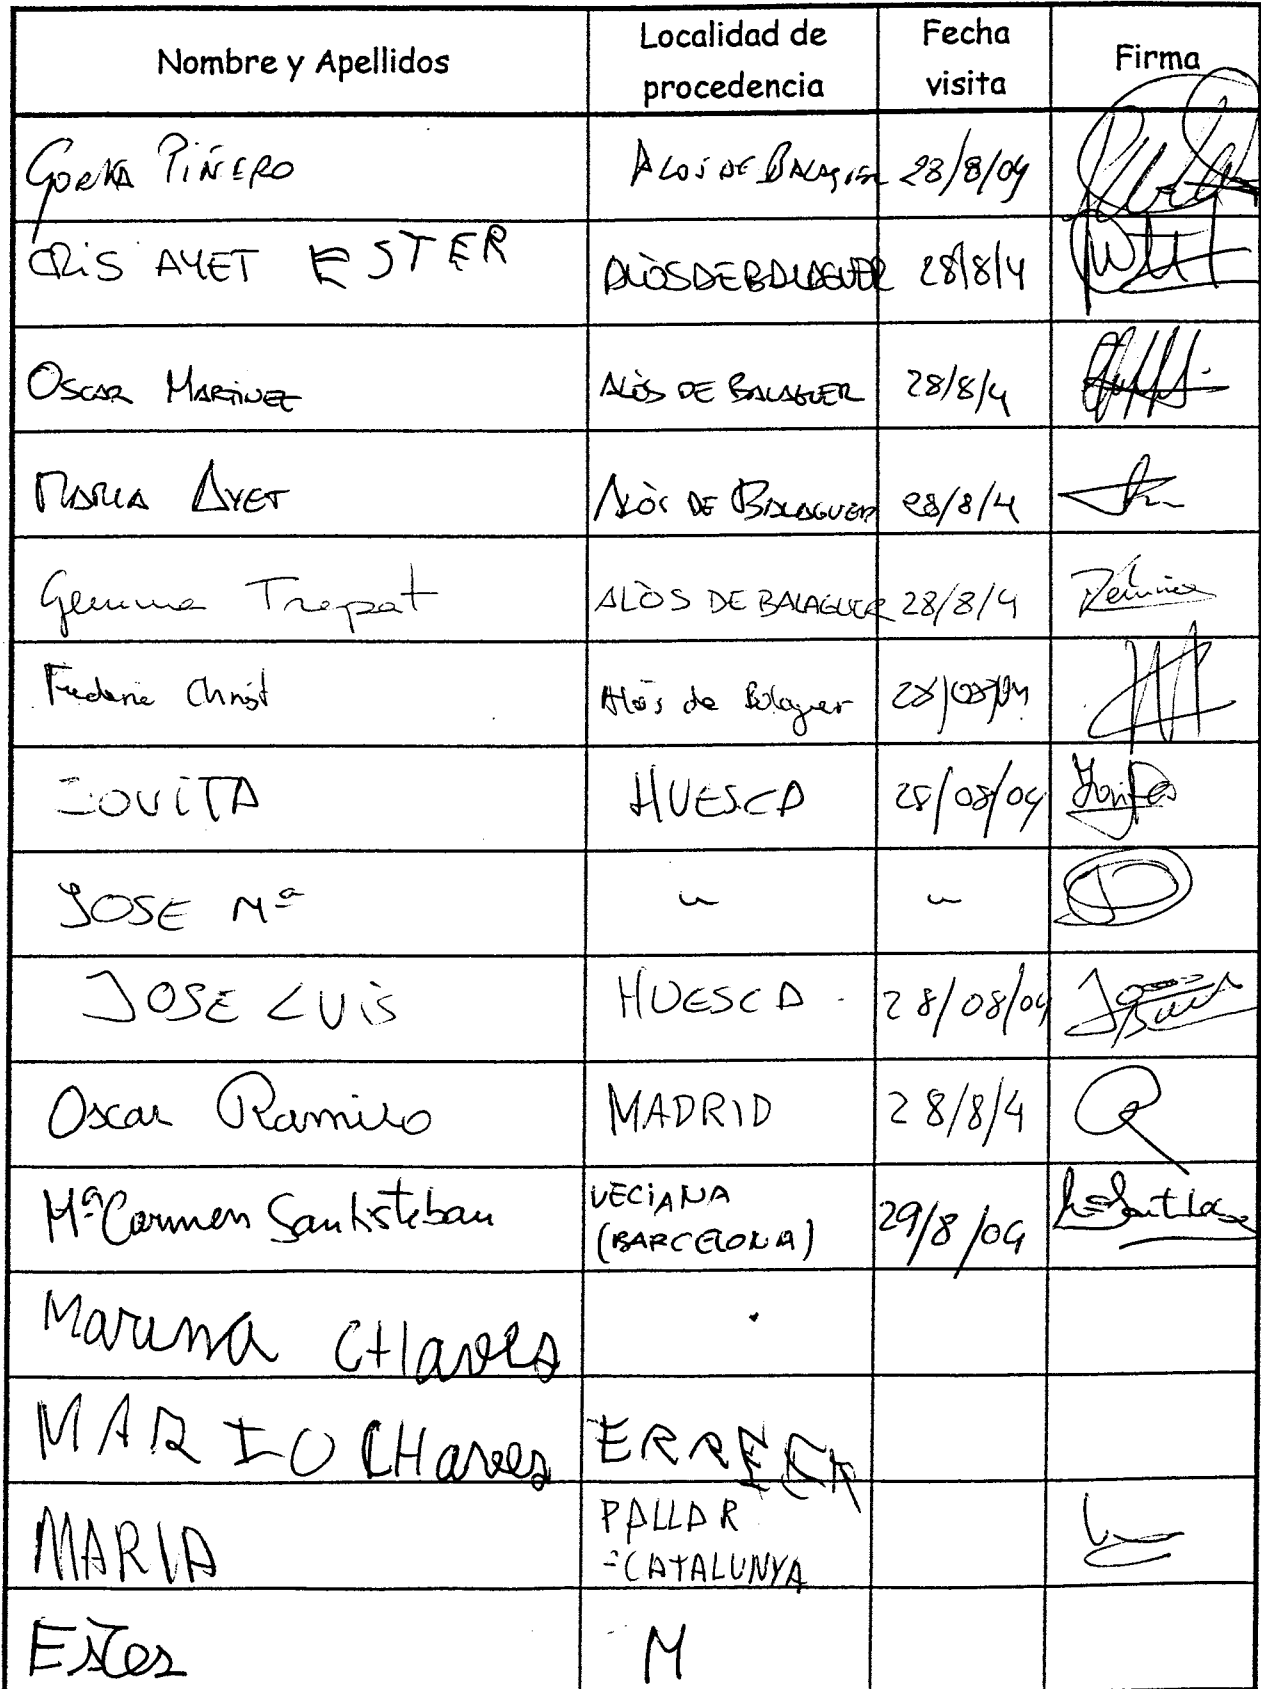 Nombre y Apellidos Localidad de procedencia Fecha visita Firma
GORKA PIÑERO ALOS DE BALAGUER 28/8/04
CRIS AYET ESTER ALÒS DE BALAGUER 28/8/4
OSCAR MARTINEZ ALÒS DE BALAGUER 28/8/4
MARIA AYET ALÒS DE BALAGUER 28/8/4
Gemma Trepat ALÒS DE BALAGUER 28/8/4
Frederic Christ Alòs de Balaguer 28/08/04
JOVITA HUESCA 28/08/04
JOSE Mª
JOSE LUIS HUESCA 28/08/04
Oscar Ramiro MADRID 28/8/4
Mª Carmen Santisteban VECIANA (BARCELONA) 29/8/04
Marina CHaves
MARIO CHaves
MARIA PALLAR -CATALUNYA
M